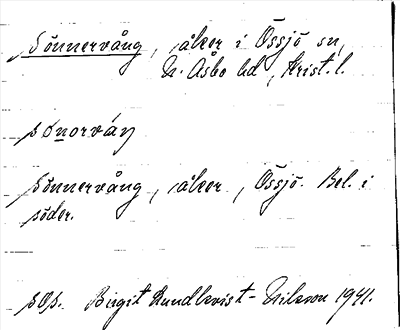 Sönnervång, åker i Össjö sn,
N. Åsbo hd, Krist. l.
sónorváŋ
Sönnervång, åker, Össjö. Bel. i
söder.
sOp. Birgit Lundkvist-Nilsson 1941.